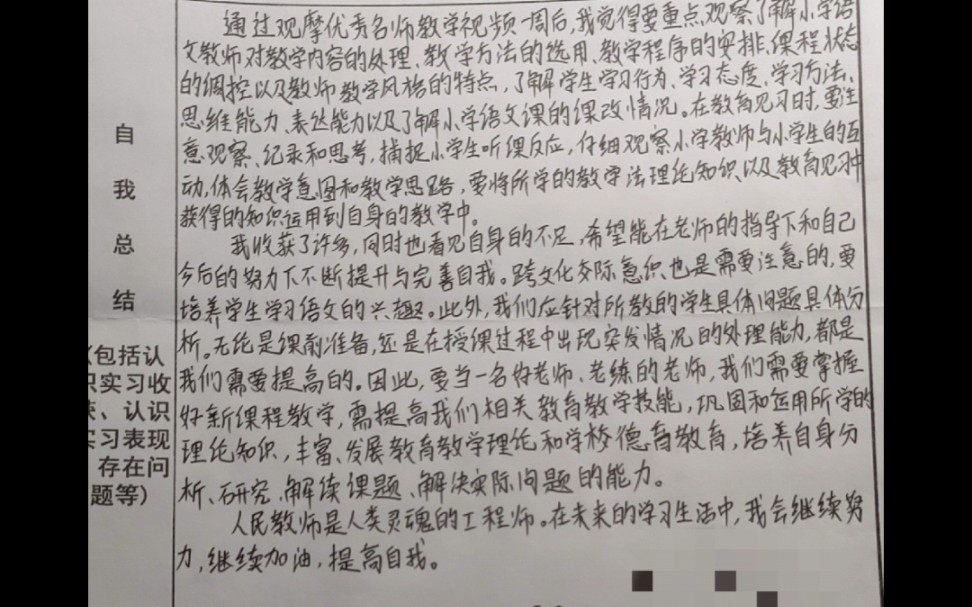 自
我
总
结
（包括认
识实习收
获、认识
实习表现
、存在问
题等）
通过观摩优秀名师教学视频一周后,我觉得要重点观察了解小学语
文教师对教学内容的处理、教学方法的选用、教学程序的安排、课程状态
的调控以及教师教学风格的特点,了解学生学习行为、学习态度、学习方法、
思维能力、表达能力以及了解小学语文课的课改情况。在教育见习时,要注
意观察、纪录和思考,捕捉小学生听课反应,仔细观察小学教师与小学生的互
动,体会教学意图和教学思路,要将所学的教学法理论知识以及教育见习中
获得的知识运用到自身的教学中。
我收获了许多,同时也看见自身的不足,希望能在老师的指导下和自己
今后的努力下不断提升与完善自我。跨文化交际意识也是需要注意的,要
培养学生学习语文的兴趣。此外,我们应针对所教的学生具体问题具体分
析。无论是课前准备,还是在授课过程中出现突发情况的处理能力,都是
我们需要提高的。因此,要当一名好老师、老练的老师,我们需要掌握
好新课程教学,需提高我们相关教育教学技能,巩固和运用所学的
理论知识,丰富、发展教育教学理论和学校德育教育,培养自身分
析、研究、解读课题、解决实际问题的能力。
人民教师是人类灵魂的工程师。在未来的学习生活中,我会继续努
力,继续加油,提高自我。